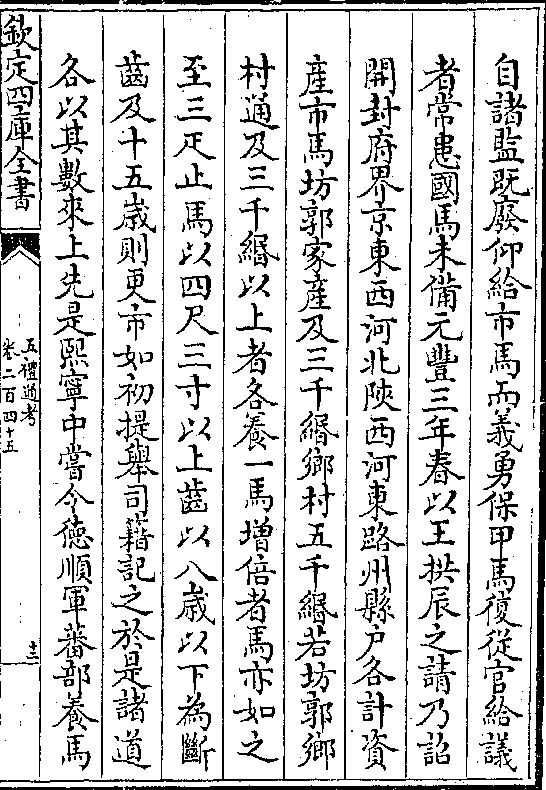 自諸監既廢仰給市馬而義勇保甲馬復從官給議
者常患國馬未備元豐三年春以王拱辰之請乃詔
開封府界京東西河北陝西河東路州縣戶各計資
產市馬坊郭家產及三千緡鄉村五千緡若坊郭鄉
村通及三千緡以上者各養一馬增倍者馬亦如之
至三疋止馬以四尺三寸以上齒以八歲以下為斷
齒及十五歲則更市如初提舉司籍記之於是諸道
各以其數來上先是熙寧中嘗令德順軍蕃部養馬
欽定四庫全書
五禮通考
卷二百四十五
十二